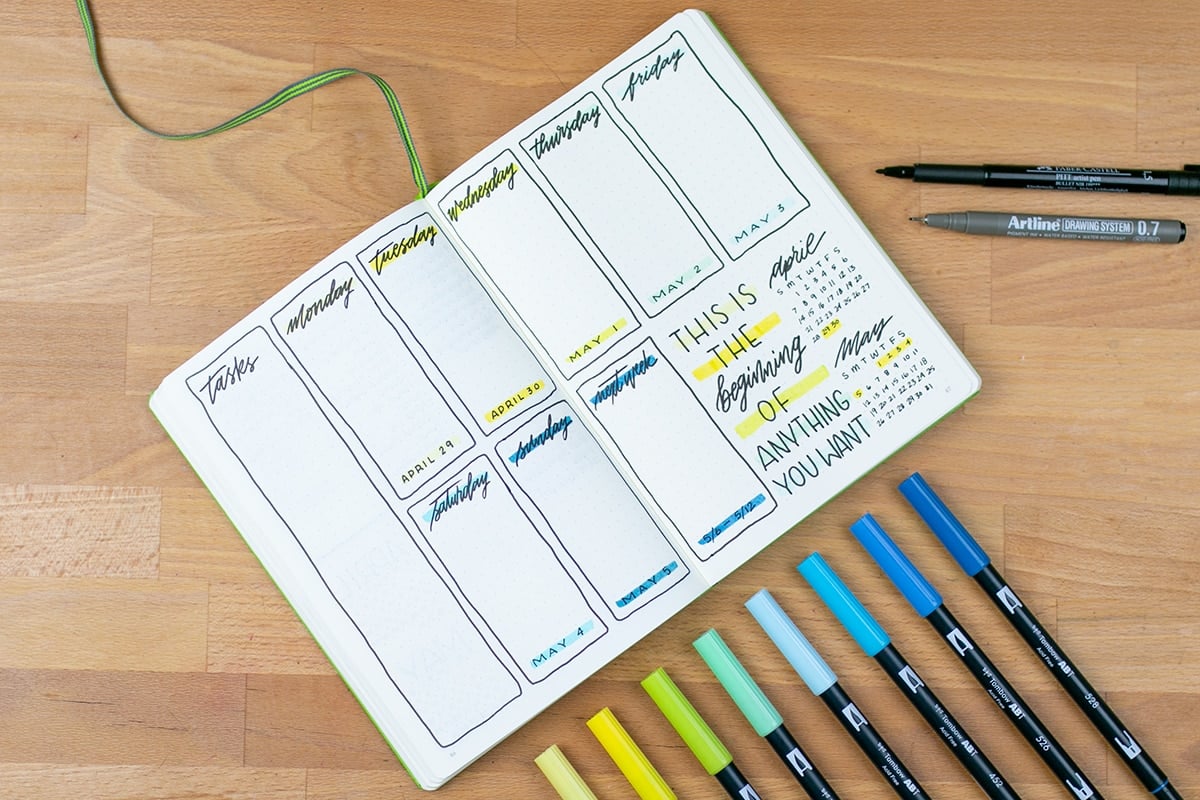 tasks
monday
APRIL 29
tuesday
APRIL 30
wednesday
MAY 1
thursday
MAY 2
friday
MAY 3
saturday
MAY 4
sunday
MAY 5
next week
5/6 - 5/12
THIS IS
THE
beginning
OF
ANYTHING
YOU WANT
april
S M T W T F S
1 2 3 4 5 6
7 8 9 10 11 12 13
14 15 16 17 18 19 20
21 22 23 24 25 26 27
28 29 30
May
S M T W T F S
1 2 3 4
5 6 7 8 9 10 11
12 13 14 15 16 17 18
19 20 21 22 23 24 25
26 27 28 29 30 31
FABER-CASTELL
PITT artist pen
1.5
Artline DRAWING SYSTEM 0.7
PIGMENT INK • WATER BASED • WATER RESISTANT
Tombow ABT
Acid Free
452
Tombow ABT
Acid Free
526
Tombow ABT
Acid Free
528